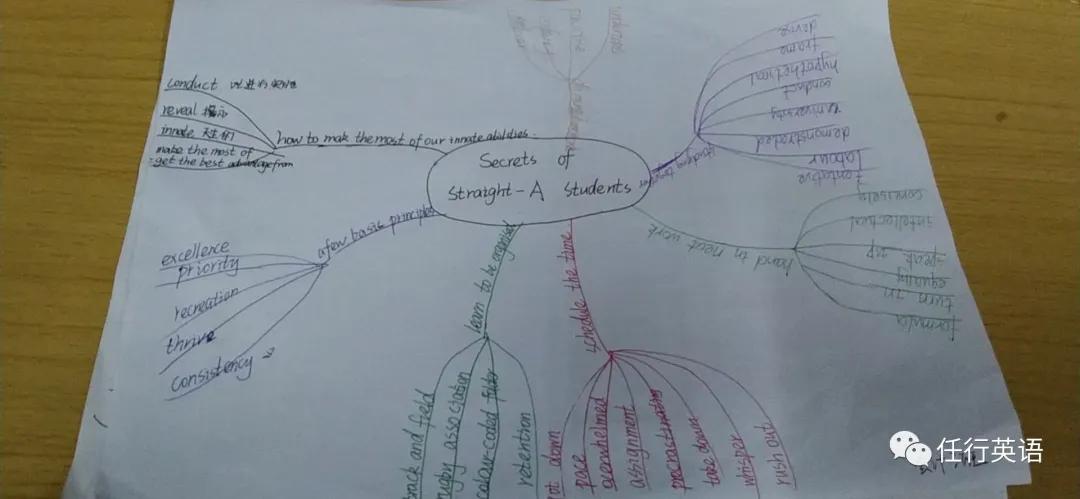 Secrets of
straight-A students
how to mak the most of our innate abilities
conduct
reveal 揭示
innate 天生的
make the most of
=get the best advantage from
a few basic principles
excellence
priority
recreation
thrive
consistency
learn to be organised
track and field
rugby association
colour-coded folder
retention
schedule the time
jot down
pace
overwhelmed
assignment
procractinating
take down
whisper
rush out
hand in neat work
concisely
intellectual
speak up
equally
turn in
formula
studying together
devise
frame
hypothetical
conduct
university
demonstrated
labour
tentative
任行英语